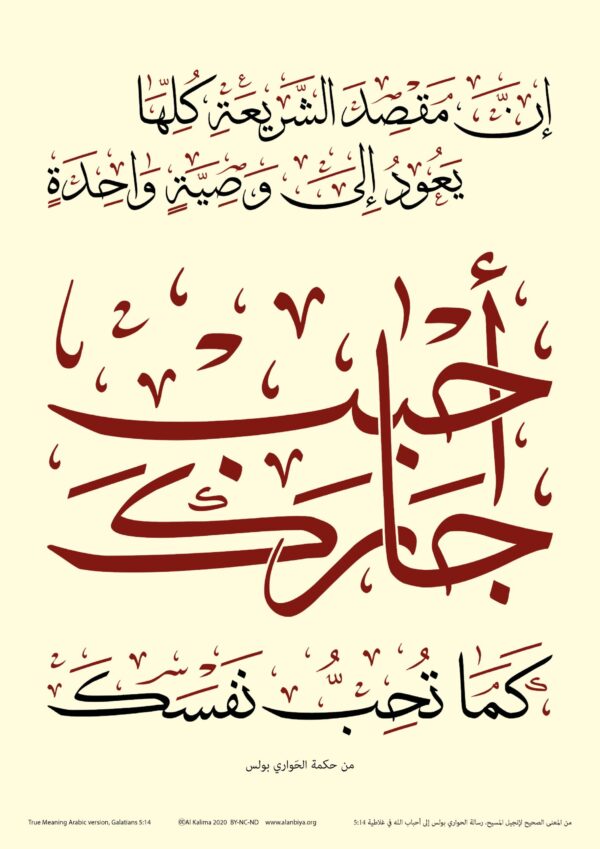 إنَّ مَقصِدَ الشَّريعَةِ كُلِّهَا
يَعُودُ إلىَ وَصِيَّةٍ وَاحِدَةٍ
أحبب
جارك
كَمَا تُحِبُّ نَفْسَكَ
من حكمة الحَواري بولس
من المعنى الصحيح لإنجيل المسيح، رسالة الحواري بولس إلى أحباب الله في غلاطية 5:14
www.alanbiya.org
🅭Al Kalima 2020 BY-NC-ND
True Meaning Arabic version, Galatians 5:14